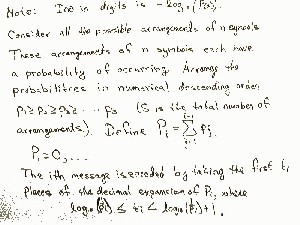 Note: Inc in digits is - log₁₀(P(x)).
Consider all the possible arrangements of n symbols
These arrangements of n symbols each have
a probability of occurring Arrange the
probabilities in numerical descending order
P₁ ≥ P₂ ≥ P₃ ≥ ... Ps (S is the total number of
arrangements). Define Pᵢ = Σ Pⱼ
P₁ = 0, ...
The ith message is encoded by taking the first tᵢ
Places of the decimal expansion of Pᵢ, where
log₁₀ ≤ tᵢ < log₁₀ + 1.